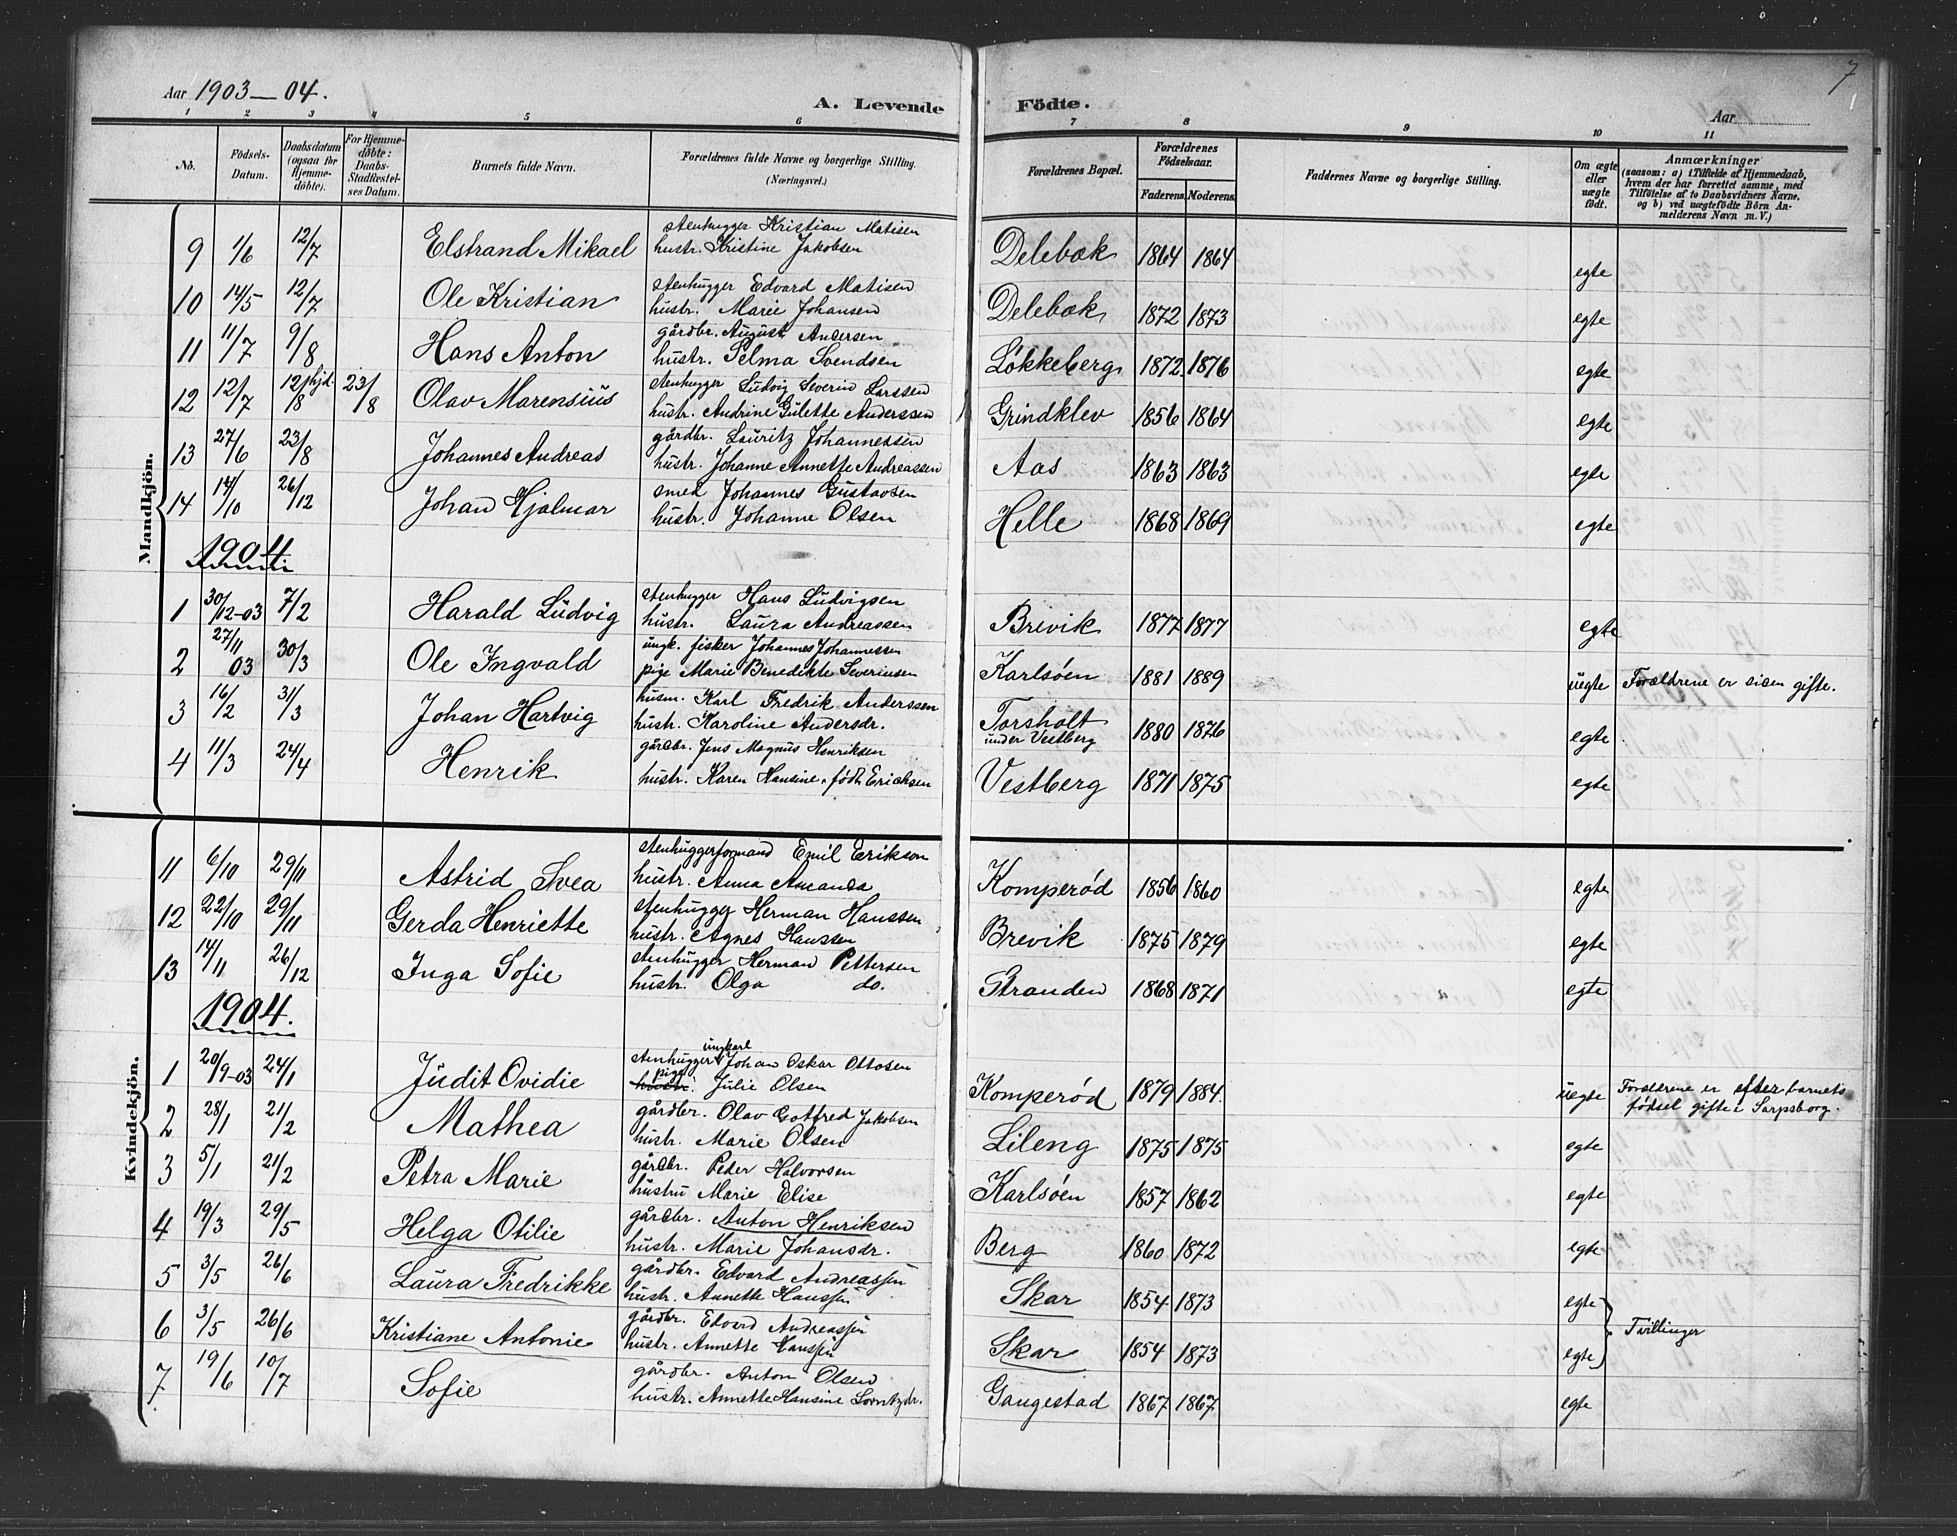 Aar 1903–04.
A. Levende Födte.
Aar
7
1 2 3 4 5 6 7 8 9 10 11
No. | Födsels-Datum. | Daabsdatum (ogsaa for Hjemmedöbte). | For Hjemmedöbte: Daabs-Stadfæstelses Datum. | Barnets fulde Navn. | Forældrenes fulde Navne og borgerlige Stilling. (Næringsvei.) | Forældrenes Bopæl. | Forældrenes Födselsaar. Faderens. Moderens. | Faddernes Navne og borgerlige Stilling. | Om ægte eller uægte födt. | Anmærkninger (saasom: a) i Tilfælde af Hjemmedaab, hvem der har forrettet samme, med Tilföielse af to Daabsvidners Navne, og b) ved uægtefödte Börn Anmelderens Navn m. V.)
Mandkjön.
9 1/6 12/7 Elstrand Mikael stenhugger Kristian Matisen
hustr. Kristine Jakobsen Delebæk 1864 1864 egte
10 14/5 12/7 Ole Kristian stenhugger Edvard Matisen
hustr. Marie Johansen Delebæk 1872 1873 egte
11 11/7 9/8 Hans Anton gårdbr. August Andersen
hustr. Selma Svendsen Løkkeberg 1872 1876 egte
12 12/7 12/8 hjd. 23/8 Olav Marensius stenhugger Ludvig Severin Larssen
hustr. Andrine Gulette Anderssen Grindklev 1856 1864 egte
13 27/6 23/8 Johannes Andreas gårdbr. Lauritz Johannessen
hustr. Johanne Annette Andreassen Aas 1863 1863 egte
14 14/10 26/12 Johan Hjalmar smed Johannes Gustavsen
hustr. Johanne Olsen Helle 1868 1869 egte
1904
1 30/12-03 7/2 Harald Ludvig stenhugger Hans Ludvigsen
hustr. Laura Andreassen Brevik 1877 1877 egte
2 27/11 03 30/3 Ole Ingvald ungk. fisker Johannes Johannessen
pige Marie Benedikte Severinsen Karlsöen 1881 1889 uegte Forældrene er siden gifte.
3 16/2 31/3 Johan Hartvig husm. Karl Fredrik Anderssen
hustr. Karoline Andersdr. Torsholt
under Vestberg 1880 1876 egte
4 11/3 24/4 Henrik gårdbr. Jens Magnus Henriksen
hustr. Karen Hansine, født Ericksen Vestberg 1871 1875 egte
Kvindekjön.
11 6/10 29/11 Astrid Svea stenhuggerformand Emil Erikson
hustr. Anna Amanda Komperød 1856 1860 egte
12 22/10 29/11 Gerda Henriette stenhugger Herman Hanssen
hustr. Agnes Hanssen Brevik 1875 1879 egte
13 14/11 26/12 Inga Sofie stenhugger Herman Pettersen
hustr. Olga do. Stranden 1868 1871 egte
1904.
1 20/9-03 24/1 Judit Ovidie stenhugger ungkarl Johan Oskar Ottosen
hustr. pige Julie Olsen Komperød 1879 1884. uegte Forældrene er efter barnets
fødsel gifte i Sarpsborg.
2 28/1 21/2 Mathea gårdbr. Olav Gotfred Jakobsen
hustr. Marie Olsen Lileng 1875 1875 egte
3 5/1 21/2 Petra Marie gårdbr. Peder Halvorsen
hustru Marie Elise Karlsöen 1857 1862 egte
4 19/3 29/5 Helga Otilie gårdbr. Anton Henriksen
hustr. Marie Johansdr. Berg 1860 1872 egte
5 3/5 26/6 Laura Fredrikke gårdbr. Edvard Andreassen
hustr. Annette Hanssen Skar 1854 1873 egte
6 3/5 26/6 Kristiane Antonie gårdbr. Edvard Andreassen
hustr. Annette Hanssen Skar 1854 1873 egte Tvillinger
7 19/6 10/7 Sofie gårdbr. Anton Olsen
hustr. Annette Hansine Lorntzdr. Gaugestad 1867 1867 egte